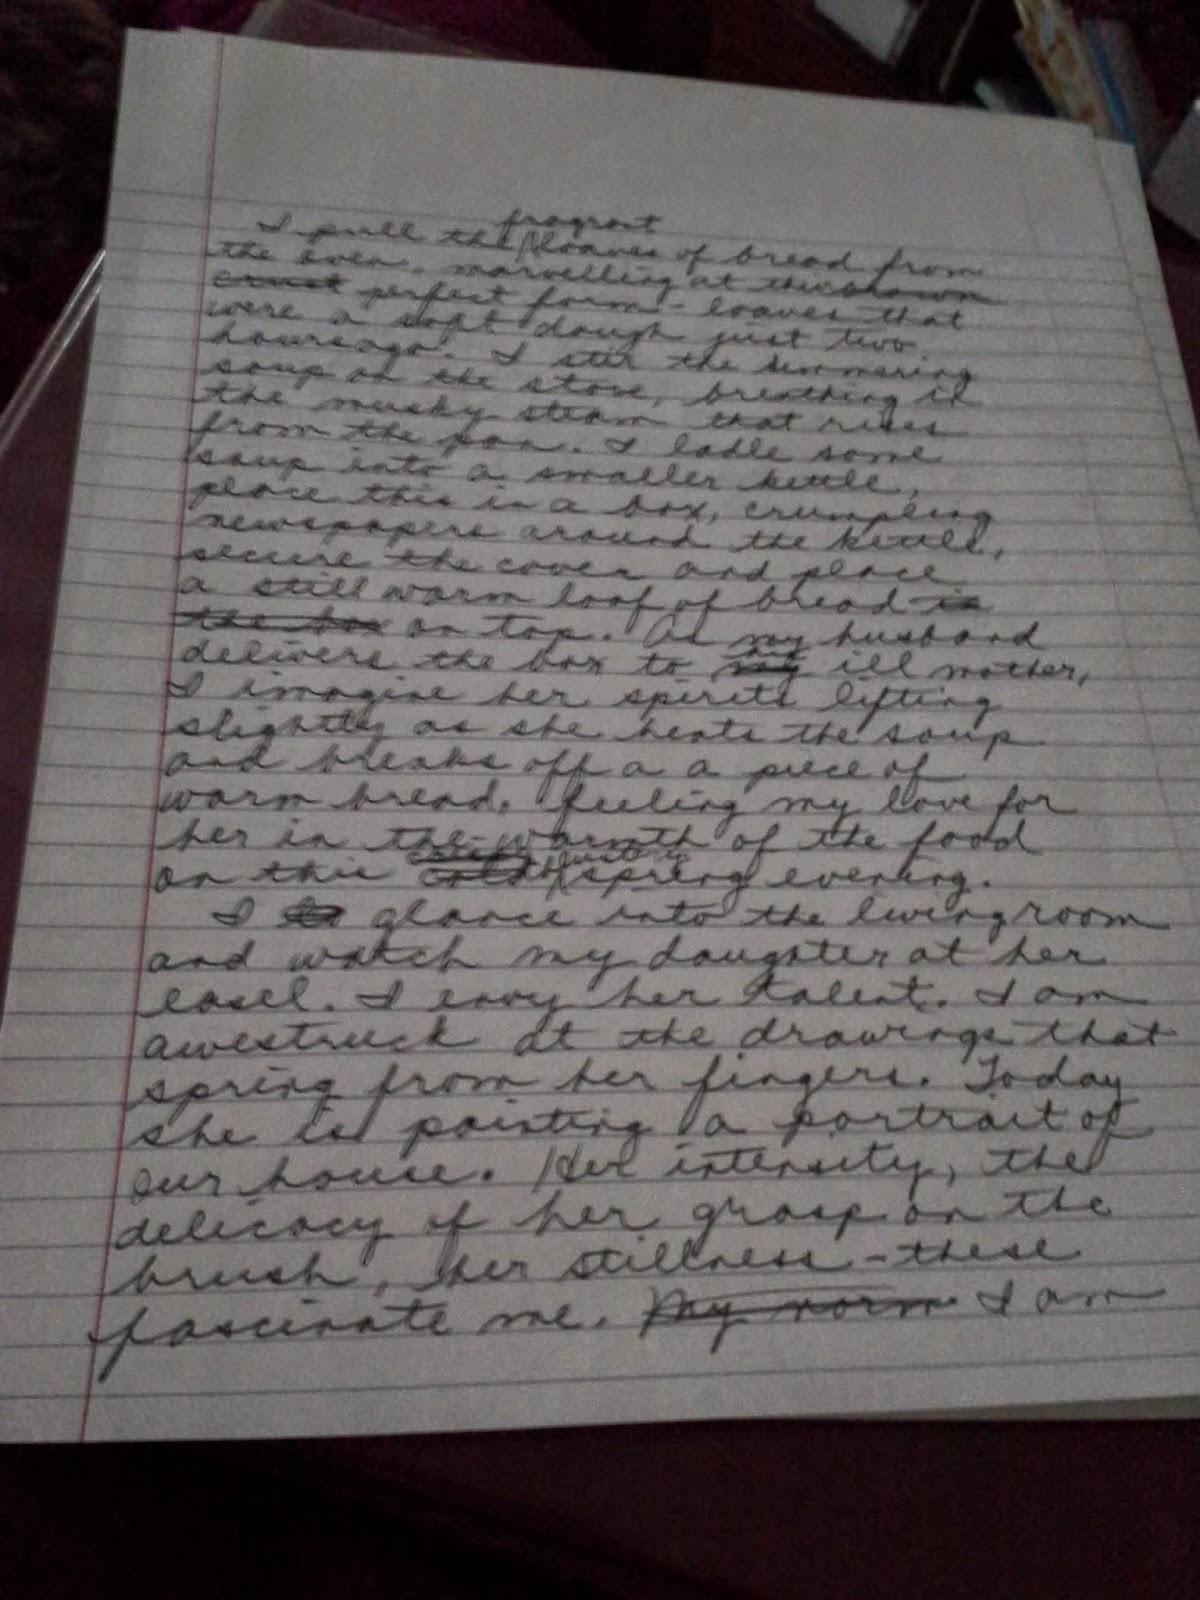 fragrant
I pull the loaves of bread from
the oven, marvelling at their brown
crust perfect form - loaves that
were a soft dough just two
hours ago. I stir the simmering
soup on the stove, breathing in
the musky steam that rises
from the pan. I ladle some
soup into a smaller kettle,
place this in a box, crumpling
newspapers around the kettle,
secure the cover and place
a still warm loaf of bread in
the box on top. As my husband
delivers the box to my ill mother,
I imagine her spirits lifting
slightly as she heats the soup
and breaks off a a piece of
warm bread, feeling my love for
her in the warmth of the food
on this spring evening.
I glance into the livingroom
and watch my daughter at her
easel. I envy her talent. I am
awestruck at the drawings that
spring from her fingers. Today
she is painting a portrait of
our house. Her intensity, the
delicacy of her grasp on the
brush, her stillness - these
fascinate me. My mom I am